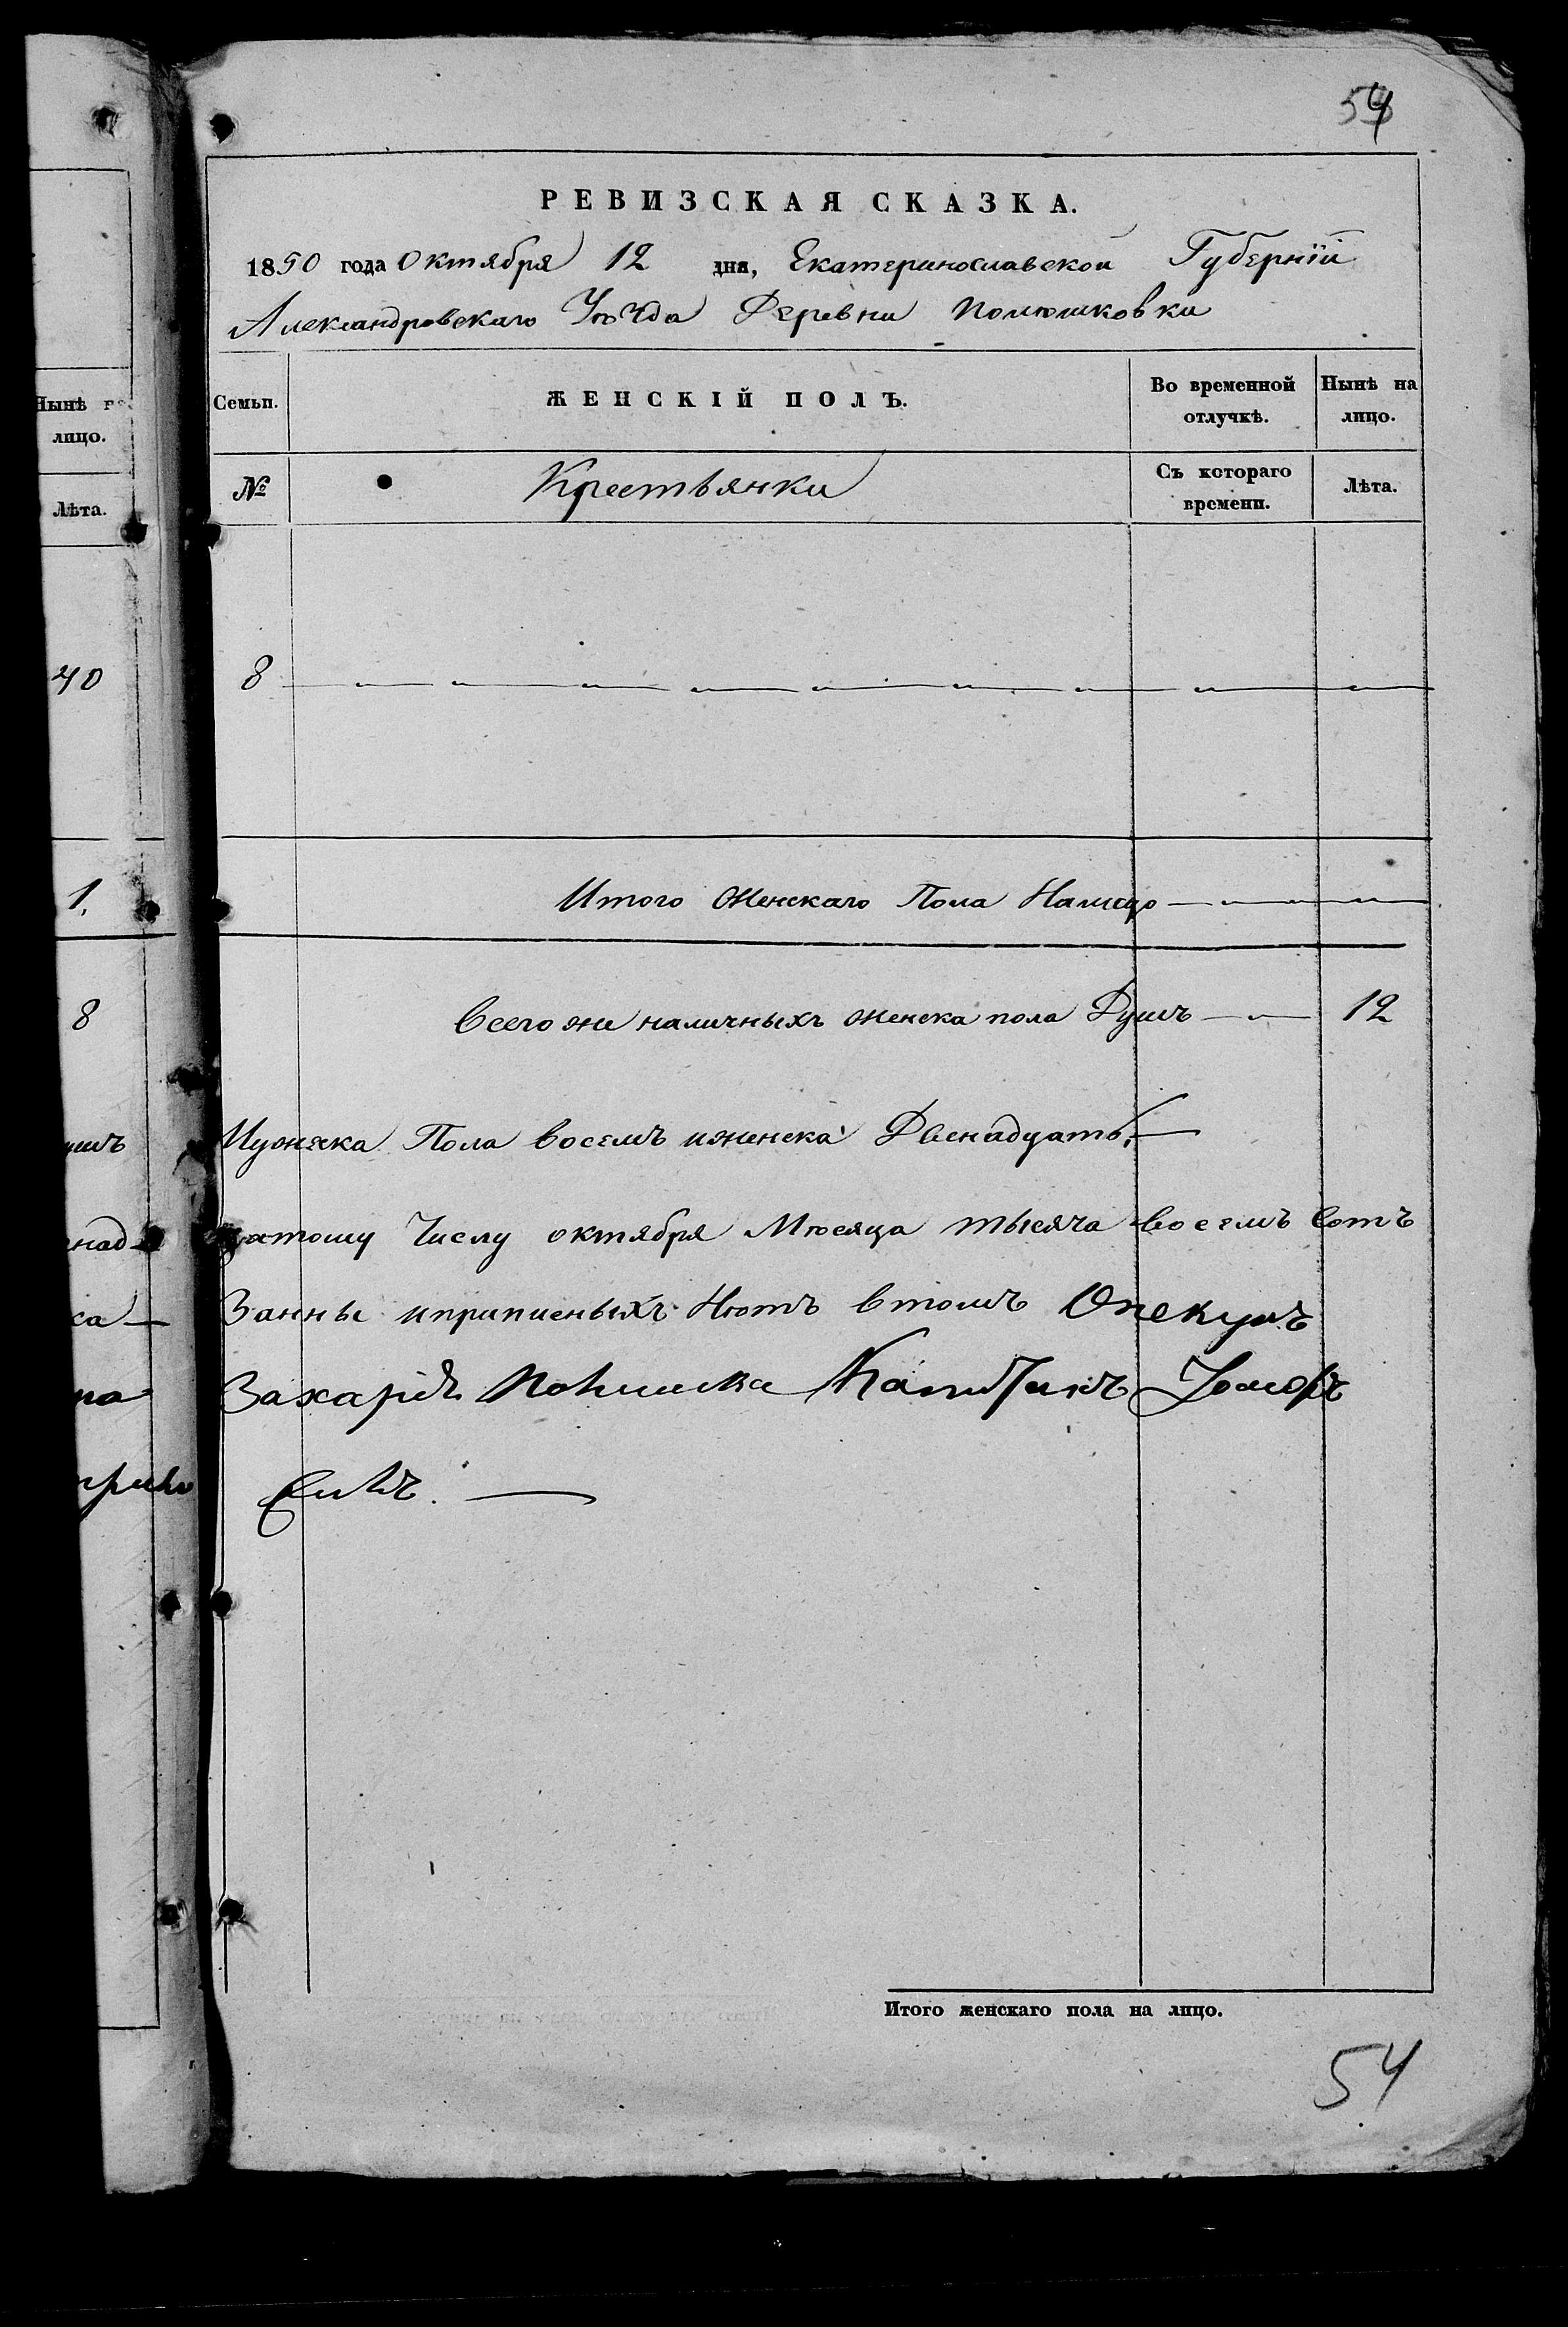 54
РЕВИЗСКАЯ СКАЗКА.
1850 года Октября 12 дня, Екатеринославской Губерніи
Александровскаго Уѣзда Деревни
Нынѣ на
лицо.
Лѣта.
40
1.
8
Семьи.
ЖЕНСКІЙ ПОЛЪ.
Во временной отлучкѣ.
Нынѣ на лицо.
№
Крестьянки
Съ котораго времени.
Лѣта.
8
Итого женскаго Пола Налицо
Всего же наличныхъ женска пола Душъ 12
Мужеска Пола восемъ иженска Двенадцать.
цатому Числу октября Мѣсяца тысяча восемъ сотъ
Занны иприписныхъ Нѣтъ втомъ Опекунъ
Захаріѣ
Итого женскаго пола на лицо.
54